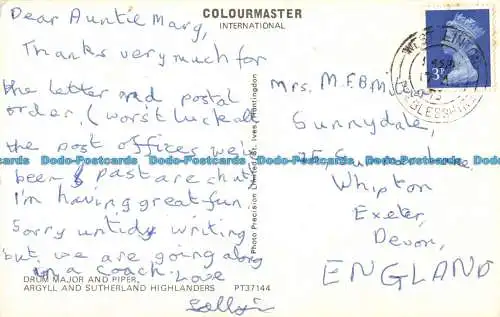 Dear Auntie Mary,
Thanks very much for
the letter and postal
order, (worst luck all
the post offices we've
been past are shut)
I'm having great fun
Sorry untidy writing
but we are going along
in a coach. Love
Sally
COLOURMASTER
INTERNATIONAL
Photo Precision Limited, St. Ives, Huntingdon
Mrs. M.F.B.
Sunnydale,
Whipton
Exeter,
Devon,
ENGLAND
DRUM MAJOR AND PIPER,
ARGYLL AND SUTHERLAND HIGHLANDERS
PT37144
Dodo-Postcards Dodo-Postcards Dodo-Postcards Dodo-Postcards Dodo-Postcards